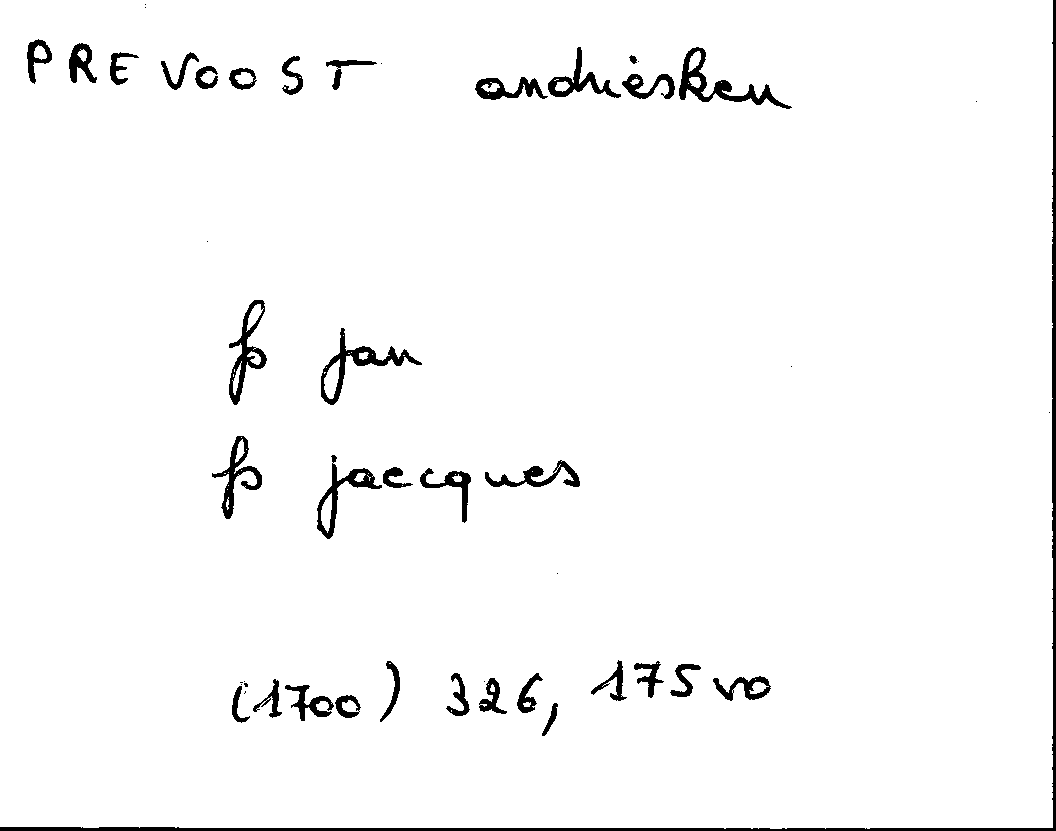 PREVOOST andriesken
fs jan
fs jaecques
(1700) 326, 175 vo